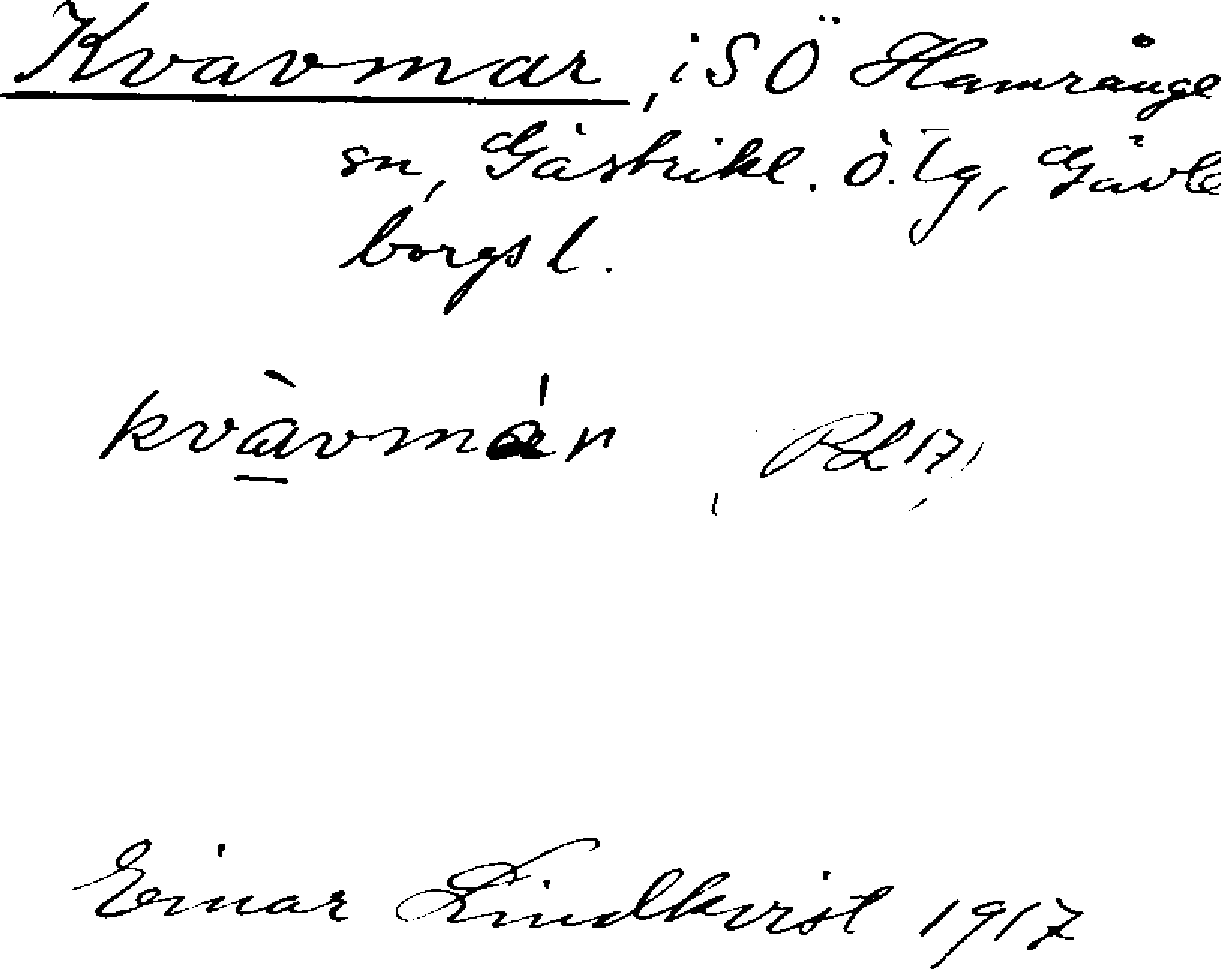 Kvavmar, i SÖ Hamrånge
sn, Gästrikl. ö. tg, Gävle
borgs l.
kvàvmár
Einar Lindkvist 1917